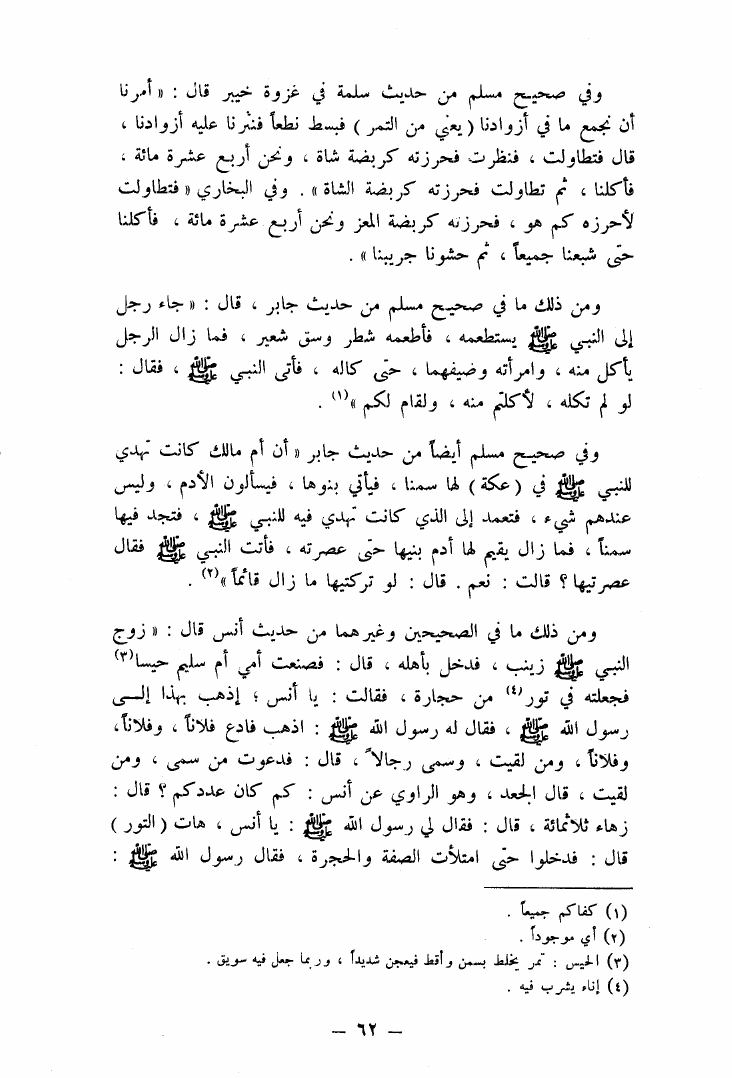 وفي صحيح مسلم من حديث سلمة في غزوة خيبر قال : « أمرنا
أن نجمع ما في أزوادنا ( يعني من التمر ) فبسط نطعاً فنثرنا عليه أزوادنا ،
قال فتطاولت ، فنظرت فحرزته كربضة شاة ، ونحن أربع عشرة مائة ،
فأكلنا ، ثم تطاولت فحرزته كربضة الشاة » . وفي البخاري « فتطاولت
لأحرزه كم هو ، فحرزته كربضة المعز ونحن أربع عشرة مائة ، فأكلنا
حتى شبعنا جميعاً ، ثم حشونا جربنا » .
ومن ذلك ما في صحيح مسلم من حديث جابر ، قال : « جاء رجل
إلى النبي ﷺ يستطعمه ، فأطعمه شطر وسق شعير ، فما زال الرجل
يأكل منه ، وامرأته وضيفهما ، حتى كاله ، فأتى النبي ﷺ ، فقال :
لو لم تكله ، لأكلتم منه ، ولقام لكم »(١) .
وفي صحيح مسلم أيضاً من حديث جابر « أن أم مالك كانت تهدي
للنبي ﷺ في ( عكة ) لها سمنا ، فيأتي بنوها ، فيسألون الأدم ، وليس
عندهم شيء ، فتعمد إلى الذي كانت تهدي فيه للنبي ﷺ ، فتجد فيها
سمناً ، فما زال يقيم لها أدم بنيها حتى عصرته ، فأتت النبي ﷺ فقال
عصرتيها ؟ قالت : نعم . قال : لو تركتيها ما زال قائماً »(٢) .
ومن ذلك ما في الصحيحين وغيرهما من حديث أنس قال : « زوج
النبي ﷺ زينب ، فدخل بأهله ، قال : فصنعت أمي أم سليم حيسا(٣)
فجعلته في تور(٤) من حجارة ، فقالت : يا أنس ؛ إذهب بهذا إلــى
رسول الله ﷺ ، فقال له رسول الله ﷺ : اذهب فادع فلاناً ، وفلاناً،
وفلاناً ، ومن لقيت ، وسمى رجالاً ، قال : فدعوت من سمى ، ومن
لقيت ، قال الجعد ، وهو الراوي عن أنس : كم كان عددكم ؟ قال :
زهاء ثلاثمائة ، قال : فقال لي رسول الله ﷺ : يا أنس ، هات ( التور )
قال : فدخلوا حتى امتلأت الصفة والحجرة ، فقال رسول الله ﷺ :
(١) كفاكم جميعاً .
(٢) أي موجوداً .
(٣) الحيس : تمر يخلط بسمن وأقط فيعجن شديداً ، وربما جعل فيه سويق .
(٤) إناء يشرب فيه .
– ٦٢ –